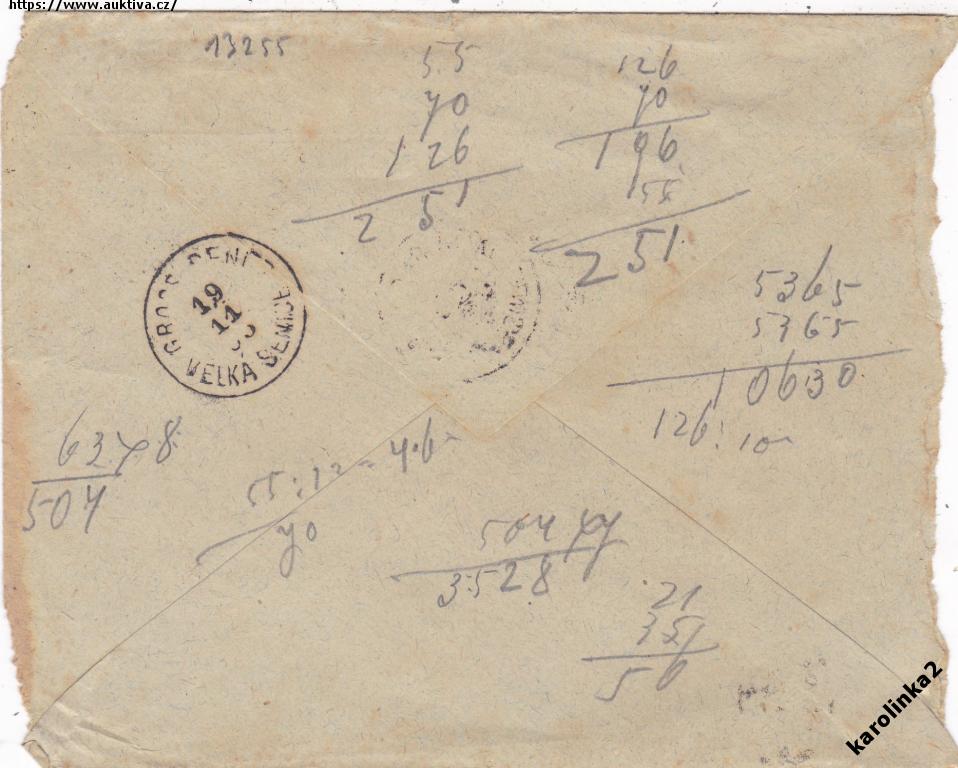 https://www.auktiva.cz/
13255
55
70
126
251
126
70
196
55
251
GROSS SENITZ
19
11
VELKÁ SENICE
5365
5365
10630
126: 10
63 x 8
504
55:12=4.6
70
504 x 7
3528
21
35
56
karolinka2